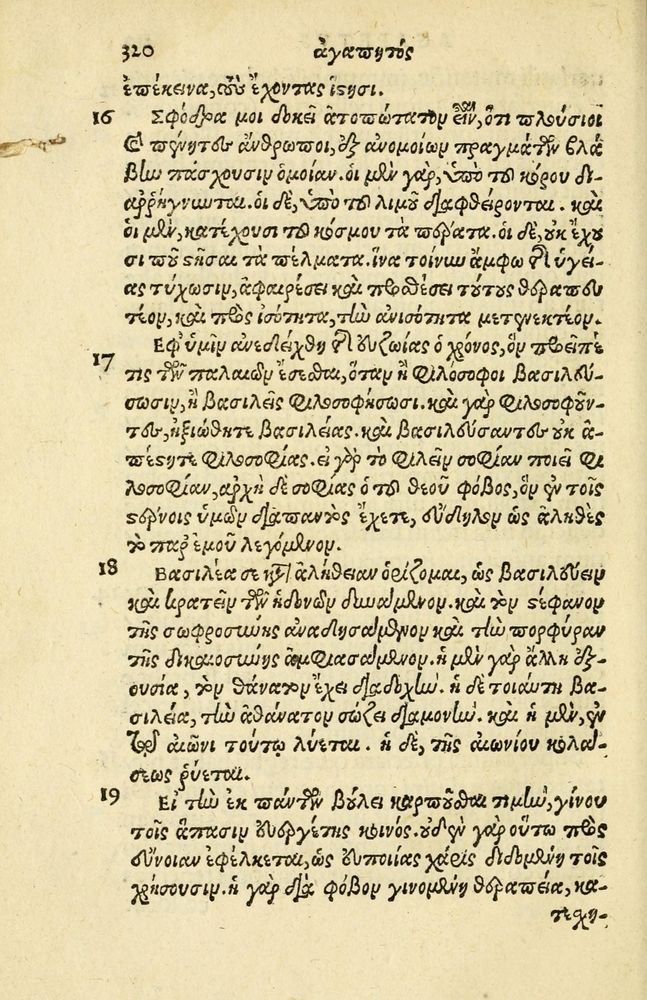 320 ἀγαπητός
ἐπέκεινα, τοὺς ἔχοντας ἵστησι.
16 Σφόδρα μοι δοκεῖ ἀτοπώτατον εἶναι, ὅτι πλούσιοι
καὶ πένητες ἄνθρωποι, ἐξ ἀνομοίων πραγμάτων βλά
βην πάσχουσιν ὁμοίαν. οἱ μὲν γὰρ, ὑπὸ τοῦ κόρου δι-
αῤῥήγνυνται. οἱ δὲ, ὑπὸ τοῦ λιμοῦ διαφθείρονται. καὶ
οἱ μὲν, κατέχουσι τοῦ κόσμου τὰ πέρατα. οἱ δὲ, οὐκ ἔχου
σι ποῦ στῆσαι τὰ πέλματα. ἵνα τοίνυν ἄμφω τῆς ὑγεί-
ας τύχωσιν, ἀφαιρέσει καὶ προσθέσει τούτους θεραπευ
τέον, καὶ πρὸς ἰσότητα, τὴν ἀνισότητα μετενεκτέον.
17 Ἐφ᾽ ὑμῖν ἀνεδείχθη τῆς εὐζωίας ὁ χρόνος, ὃν προεῖπέ
τις τῶν παλαιῶν ἔσεσθαι, ὅταν ἢ φιλόσοφοι βασιλεύ-
σωσιν, ἢ βασιλεῖς φιλοσοφήσωσι. καὶ γὰρ φιλοσοφοῦν-
τες, ἠξιώθητε βασιλείας. καὶ βασιλεύσαντες οὐκ ἀ-
πέστητε φιλοσοφίας. εἰ γὰρ τὸ φιλεῖν σοφίαν ποιεῖ φι
λοσοφίαν, ἀρχὴ δὲ σοφίας ὁ τοῦ θεοῦ φόβος, ὃν ἐν τοῖς
στέρνοις ὑμῶν διαπαντὸς ἔχετε, εὔδηλον ὡς ἀληθὲς
τὸ παρ᾽ ἐμοῦ λεγόμενον.
18 Βασιλέα σε κατὰ ἀλήθειαν ὁρίζομαι, ὡς βασιλεύειν
καὶ κρατεῖν τῶν ἡδονῶν δυνάμενον. καὶ τὸν στέφανον
τῆς σωφροσύνης ἀναδησάμενον καὶ τὴν πορφύραν
τῆς δικαιοσύνης ἀμφιασάμενον. ἡ μὲν γὰρ ἄλλη ἐξ-
ουσία, τὸν θάνατον ἔχει διαδοχήν. ἡ δὲ τοιαύτη βα-
σιλεία, τὴν ἀθάνατον σώζει διαμονήν. καὶ ἡ μὲν, ἐν
τῷ αἰῶνι τούτῳ λύεται. ἡ δὲ, τῆς αἰωνίου κολά-
σεως ῥύεται.
19 Εἰ τὴν ἐκ πάντων βούλει καρποῦσθαι τιμὴν, γίνου
τοῖς ἅπασιν εὐεργέτης κοινός. οὐδὲν γὰρ οὕτω πρὸς
εὔνοιαν ἐφέλκεται, ὡς εὐποιίας χάρις διδομένη τοῖς
χρῄζουσιν. ἡ γὰρ διὰ φόβον γινομένη θεραπεία, κα-
τεχη-